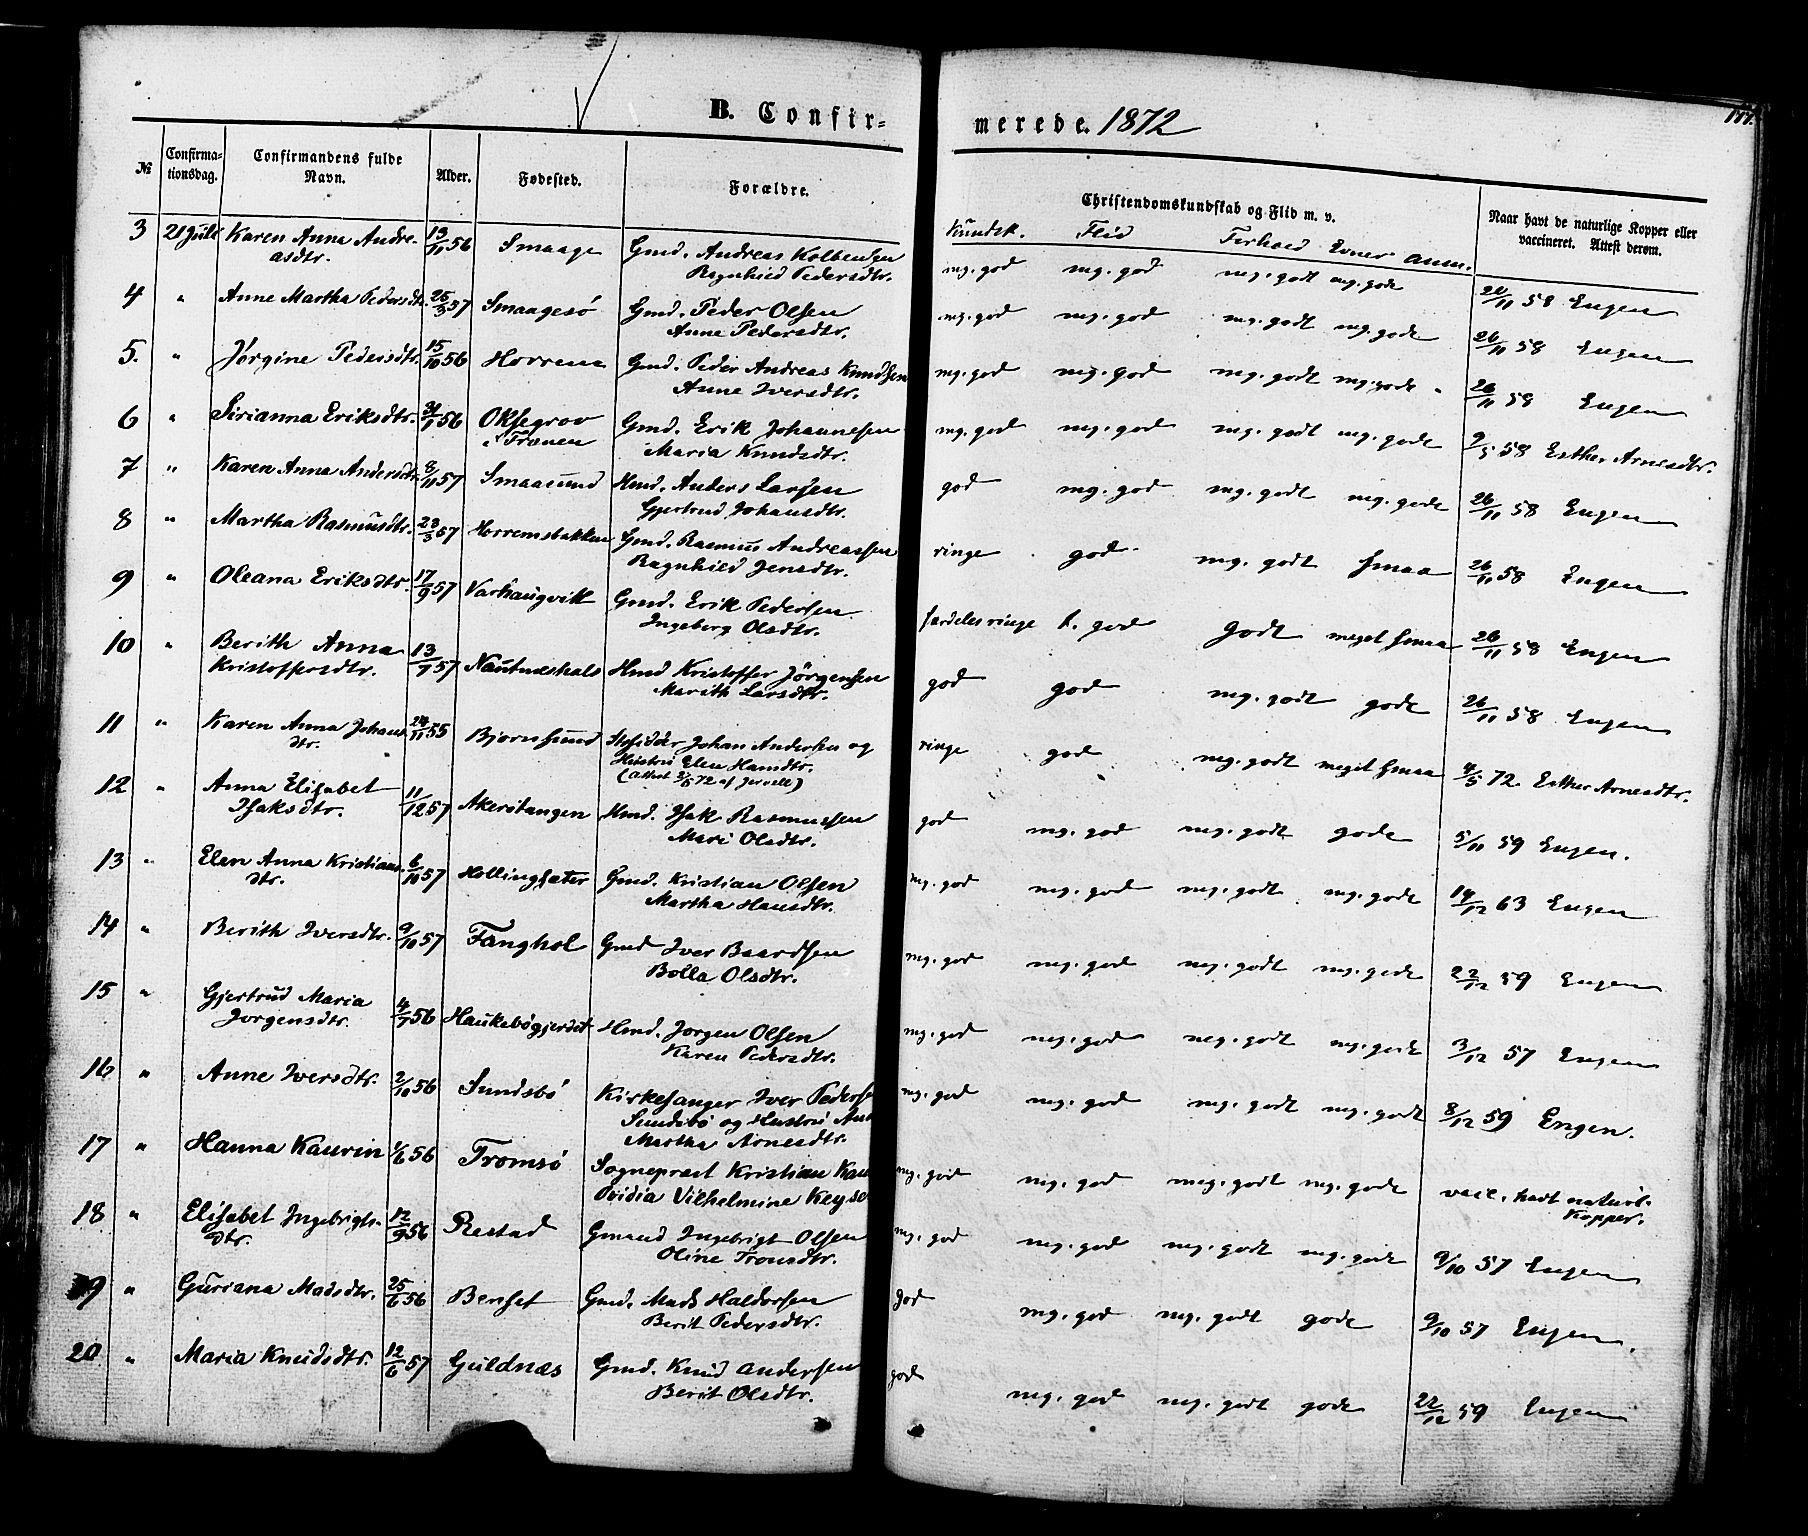 B. Confir-
merede. 1872
177.
№
Confirma-
tionsdag.
Confirmandens fulde
Navn.
Alder.
Fødested.
Forældre.
Christendomskundskab og Flid m. v.
Naar havt de naturlige Kopper eller
vaccineret. Attest derom.
Kundsk. Flid Forhold Evner Anm.
3 21 Juli Karen Anna Andre- 13/11 56 Smaage Gmd. Andreas Kolbensen mg. god mg. god meg. godt mg. gode 20/11 58 Engen
asdtr. Ragnhild Pedersdtr.
4 " Anne Martha Pedersdtr. 25/3 57 Smaagesø Gmd. Peder Olsen mg. god mg. god mg. godt mg. gode 26/11 58 Engen
Anne Pedersdtr.
5. " Jørgine Pedersdtr. 15/10 56 Horrem Gmd. Peder Andreas Knudsen mg. god mg. god mg. godt mg. gode " 26/11 58 Engen
Anne Iversdtr.
6 " Sirianna Eriksdtr. 56 Oksegrov Gmd. Erik Johannesen mg. god mg. god mg. godt mg. gode 9/5 58 Esther Arnesdtr.
i Frænen Maria Knudsdtr.
7 " Karen Anna Andersdtr. 8/11 57 Smaasund Hmd. Anders Larsen god mg. god mg. godt mg. gode 26/11 58 Engen
Gjertrud Johansdtr.
8 " Martha Rasmusdtr. 23/3 57 Horremsbakken Gmd. Rasmus Andreassen ringe god mg. godt smaa 26/11 58 Engen
Ragnhild Jensdtr.
9 " Oleana Eriksdtr. 17/9 57 Varhaugvik Gmd. Erik Pedersen særdeles ringe t. god godt meget smaa 26/11 58 Engen
Ingeborg Olsdtr.
10 " Berith Anna 13/7 57 Nautneshals Hmd Kristoffer Jørgensen god god mg. godt gode 26/11 58 Engen
Kristoffersdtr. Marith Larsdtr.
11 " Karen Anna Johans- 24/11 55 Bjornsund Johan Andersen og ringe god mg. godt meget smaa 4/5 72 Esther Arnesdtr.
dtr. Hustru Elen Hansdtr.
12 " Anna Elisabet 11/12 57 Akerstangen Hmd. Isak Rasmussen god mg. god mg. godt gode 5/11 59 Engen.
Isaksdtr. Mari Olsdtr.
13 " Elen Anna Kristians- 6/10 57 Hollingsæter Gmd. Kristian Olsen mg. god mg. god mg. godt mg. gode 14/12 63 Engen
dtr. Martha Hansdtr.
14 " Berith Iversdtr. 9/10 57 Fanghol Gmd Iver Baardsen mg. god mg. god mg. godt mg. gode 22/12 59 Engen
Bolla Olsdtr.
15 " Gjertrud Maria 4/7 56 Haukebøgjerdet Hmd. Jorgen Olsen mg. god mg. god mg. godt mg. gode 3/12 57 Engen
Jorgensdtr. Karen Pedersdtr.
16 " Anne Iversdtr. 2/10 56 Sundsbø Kirkesanger Iver Pedersen mg. god mg. god mg. godt mg. godt 8/12 59 Engen.
Sundsbø og Hustru Ane
Martha Arnesdtr.
17 " Hanna Kaurin 1/6 56 Tromsø Sogneprest Kristian Kau mg. god mg. god meg. godt mg. gode vacc. havt naturl.
Ovidia Vilhelmine Keyser Kopper.
18 " Elisabet Ingebrigts- 12/9 56 Restad Gmand Ingebrigt Olsen mg. god mg. god mg. godt mg. gode 9/10 57 Engen
dtr. Oline Tronsdtr.
19 " Guriana Madsdtr. 25/6 56 Benset Gmd. Mads Haldorsen god mg. god mg. godt gode 9/10 57 Engen.
Berit Pedersdtr.
20 " Maria Knudsdtr. 12/6 57 Guldnæs Gmd. Knud Andersen god mg. god mg. godt gode 22/12 59 Engen
Berit Olsdtr.